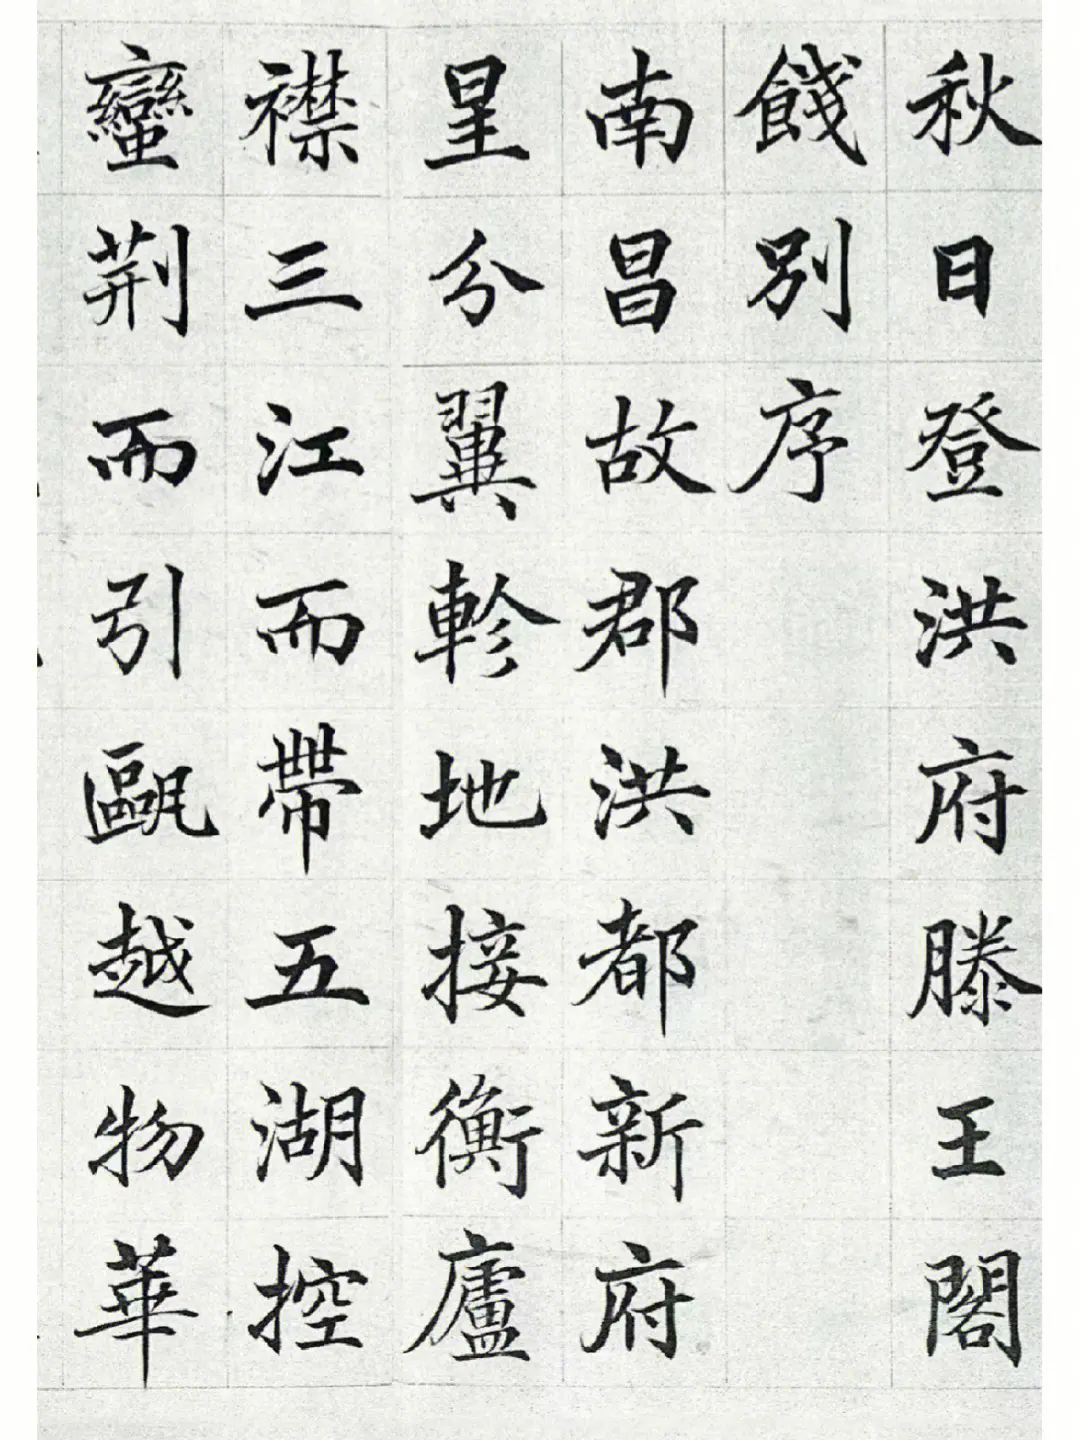 秋日登洪府滕王閣
餞別序
南昌故郡洪都新府
星分翼軫地接衡廬
襟三江而帶五湖控
蠻荆而引甌越物華